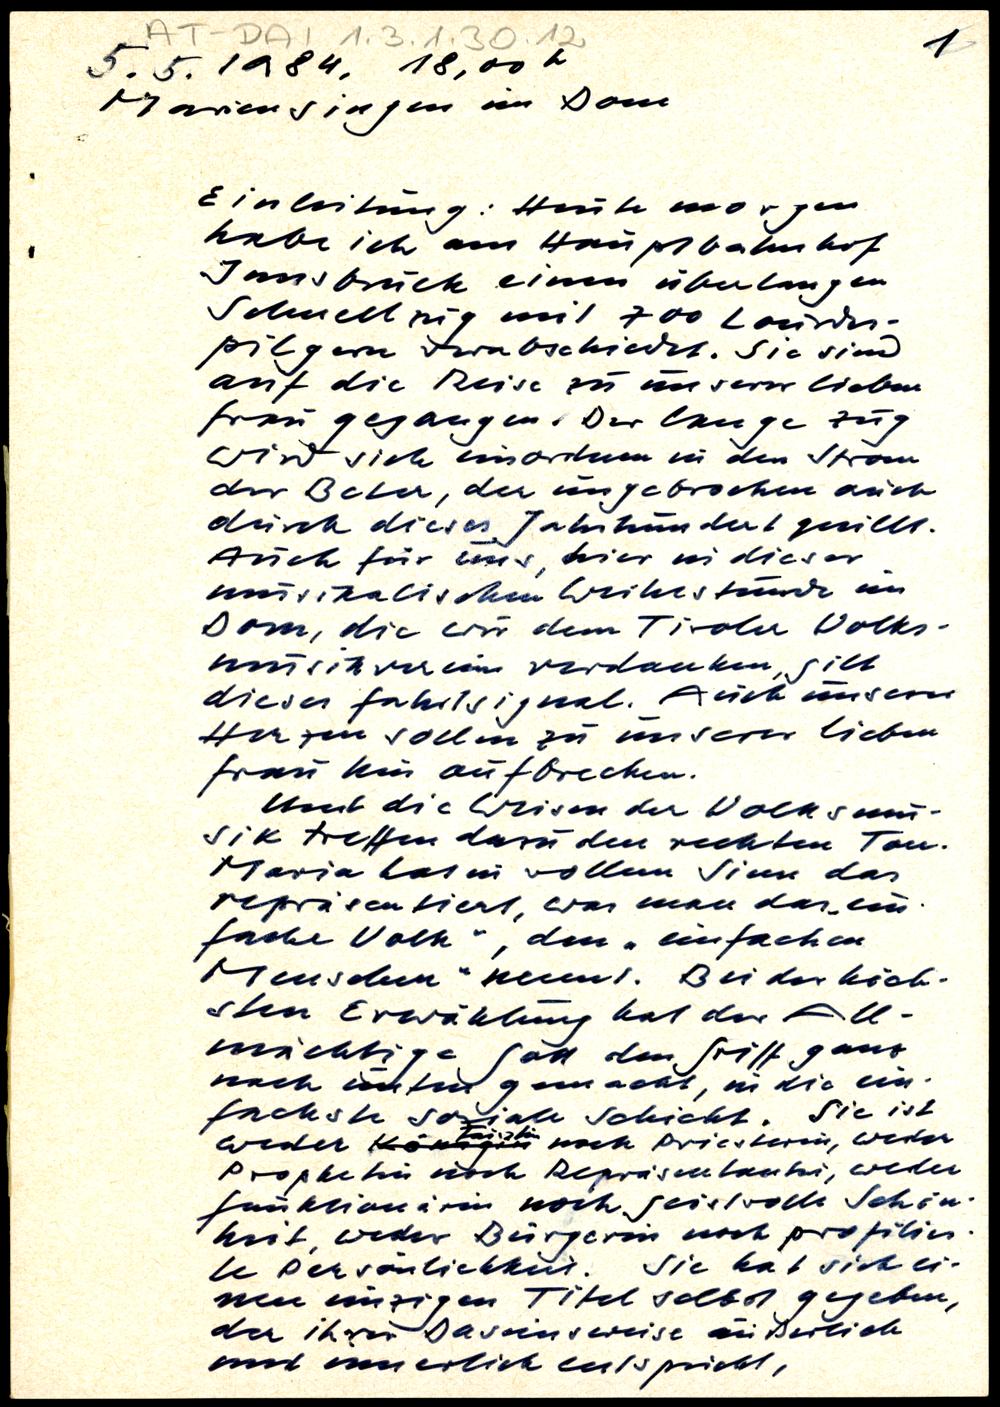 AT-DAI 1.3.1.30.12
1
5.5.1984, 18,00 h
Mariensingen im Dom
Einleitung: Heute morgen
habe ich am Hauptbahnhof
Innsbruck einen überlangen
Schnellzug mit 700 Lourdes-
pilgern verabschiedet. Sie sind
auf die Reise zu unserer lieben
Frau gegangen. Der lange Zug
wird sich einordnen in den Strom
der Beter, der ungebrochen auch
durch dieses Jahrhundert quillt.
Auch für uns, hier in dieser
musikalischen Weihestunde im
Dom, die wir dem Tiroler Volks-
musikverein verdanken, gilt
dieses Fahrtsignal. Auch unsere
Herzen sollen zu unserer lieben
Frau hin aufbrechen.
Und die Weisen der Volksmu-
sik treffen dazu den rechten Ton.
Maria hat in vollem Sinn das
repräsentiert, was man das „ein-
fache Volk“, den „einfachen
Menschen“ nennt. Bei der höch-
sten Erwählung hat der All-
mächtige Gott den Griff ganz
nach unten gemacht, in die ein-
fachste soziale Schicht. Sie ist
weder Königin Fürstin noch Priesterin, weder
Prophetin noch Repräsentantin, weder
Funktionärin noch geistvolle Schön-
heit, weder Bürgerin noch profilier-
te Persönlichkeit. Sie hat sich ei-
nen einzigen Titel selbst gegeben,
der ihrer Daseinsweise äußerlich
und innerlich entspricht,